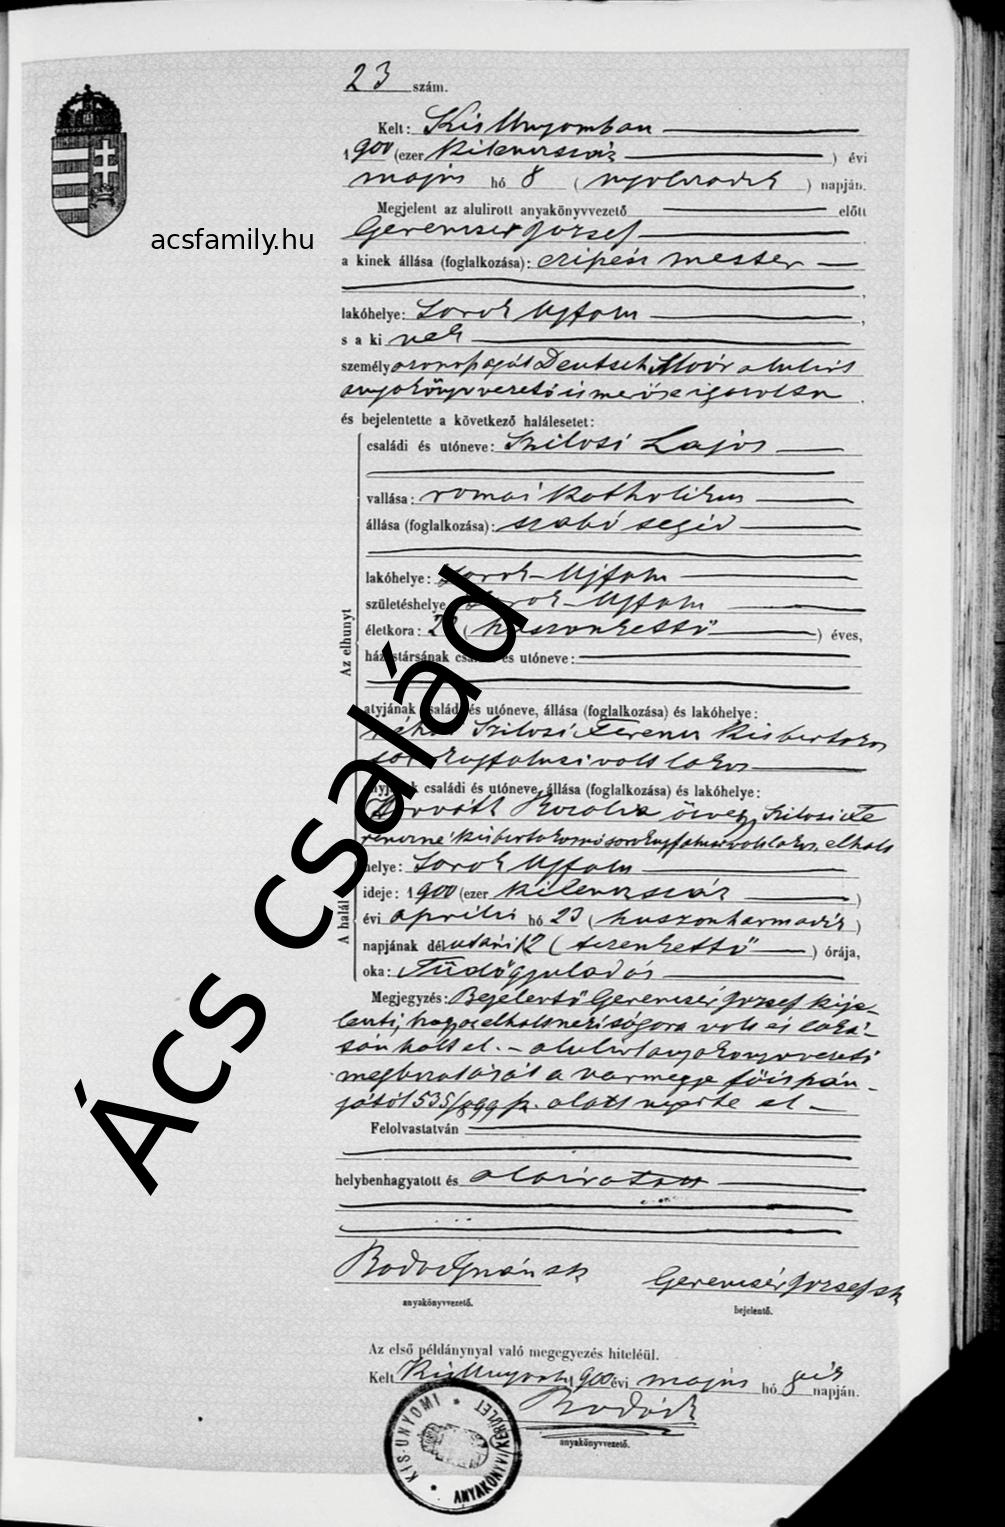 23 szám.
Kelt: Kis Unyomban
1900 (ezer kilencszáz ) évi
május hó 8 ( nyolcadik ) napján.
Megjelent az alulirott anyakönyvvezető előtt
Gerencsér József
acsfamily.hu
a kinek állása (foglalkozása): czipész mester
lakóhelye: Sorok Ujfalu
s a ki nek
személyazonosságát Deutsch Mór alulirt
anyakönyvvezető ismerőse igazolta
és bejelentette a következő halálesetet:
Az elhunyt
családi és utóneve: Szilosi Lajos
vallása: romai katholikus
állása (foglalkozása): szabó segéd
lakóhelye: Sorok-Ujfalu
születéshelye Sorok-Ujfalu
életkora: 22 ( huszonkettő ) éves,
házastársának családi és utóneve:
atyjának családi és utóneve, állása (foglalkozása) és lakóhelye:
néhai Szilosi Ferencz kisbirtokos
sorokujfalusi volt lakos
anyjának családi és utóneve, állása (foglalkozása) és lakóhelye:
Horváth Rozalia özvegy Szilosi Fe
renczné kisbirtokosnő sorokujfalusi volt lakos, elhalt
A halál
helye: Sorok Ujfalu
ideje: 1900 (ezer kilenczszáz )
évi április hó 23 ( huszonharmadik )
napjának délutáni 12 ( tizenkettő ) órája,
oka: Tüdőgyuladás
Megjegyzés: Bejelentő Gerencsér József kije-
lenti, hogy az elhaltnek sógora volt és laká-
sán halt el. - alulirt anyakönyvvezető
megbizatását a vármegye főispán-
jától 535/899 sz. alatt nyerte el
Felolvastatván
helybenhagyatott és aláiratott
Ács család
Gerencsér József sk
anyakönyvvezető.
bejelentő.
Az első példánynyal való megegyezés hiteléül.
Kelt Kis Unyom 1900 évi május hó 8ik napján.
anyakönyvvezető.
KIS-UNYOMI ANYAKÖNYVI KERÜLET